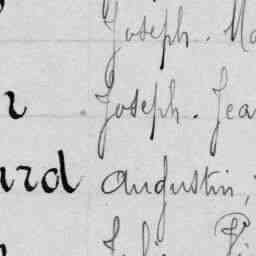 Joseph. Ma
r Joseph. Jea
urd Augustin,